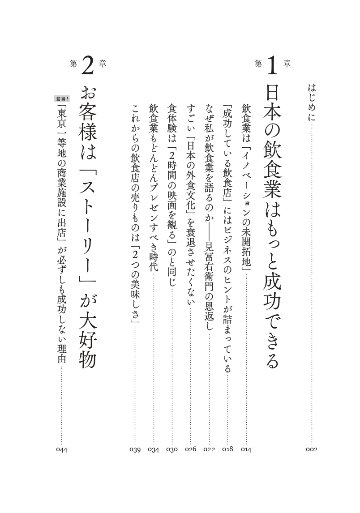 はじめに 002
第1章 日本の飲食業はもっと成功できる
飲食業は「イノベーションの未開拓地」 014
「成功している飲食店」にはビジネスのヒントが詰まっている 018
なぜ私が飲食業を語るのか──見冨右衛門の恩返し 022
すごい「日本の外食文化」を衰退させたくない 026
食体験は「2時間の映画を観る」のと同じ 030
飲食業もどんどんプレゼンすべき時代 034
これからの飲食店の売りものは「2つの美味しさ」 039
第2章 お客様は「ストーリー」が大好物
「東京一等地の商業施設に出店」が必ずしも成功しない理由 044